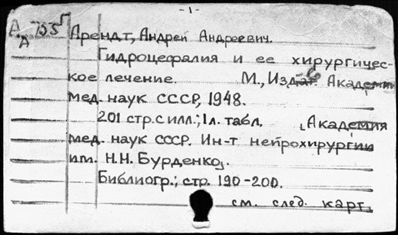 -1-
А 755
А
Арендт, Андрей Андреевич.
Гидроцефалия и ее хирургичес-
кое лечение. М., Издат. Академии
мед. наук СССР, 1948.
201 стр. с илл.; 1 л. табл. (Академия
мед. наук СССР. Ин-т нейрохирургии
им. Н.Н. Бурденко).
Библиогр.: стр. 190-200.
см. след. карт.